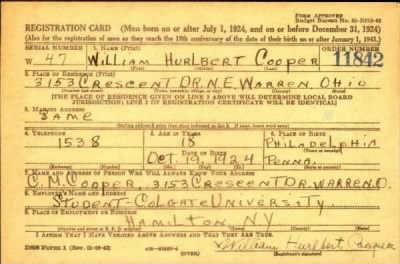 FORM APPROVED
REGISTRATION CARD (Men born on or after July 1, 1924, and on or before December 31, 1924)
(Also for the registration of men as they reach the 18th anniversary of the date of their birth on or after January 1, 1943.)
SERIAL NUMBER 1. NAME (Print) ORDER NUMBER
W 47 William Hurlbert Cooper 11842
2. PLACE OF RESIDENCE (Print)
3153 Crescent DR. N.E. Warren Ohio
[THE PLACE OF RESIDENCE GIVEN ON LINE 2 ABOVE WILL DETERMINE LOCAL BOARD
JURISDICTION; LINE 2 OF REGISTRATION CERTIFICATE WILL BE IDENTICAL]
3. MAILING ADDRESS
SAME
4. TELEPHONE 5. AGE IN YEARS 6. PLACE OF BIRTH
1538 18 PhiladelPhia
DATE OF BIRTH
Oct. 19, 1924 Penna.
7. NAME AND ADDRESS OF PERSON WHO WILL ALWAYS KNOW YOUR ADDRESS
C. M. Cooper, 3153 Crescent Dr. Warren, O.
8. EMPLOYER'S NAME AND ADDRESS
Student - Colgate University.
9. PLACE OF EMPLOYMENT OR BUSINESS
Hamilton NY
I AFFIRM THAT I HAVE VERIFIED ABOVE ANSWERS AND THAT THEY ARE TRUE.
DSS Form 1 (Rev. 11-16-42) (OVER) William Hurlbert Cooper